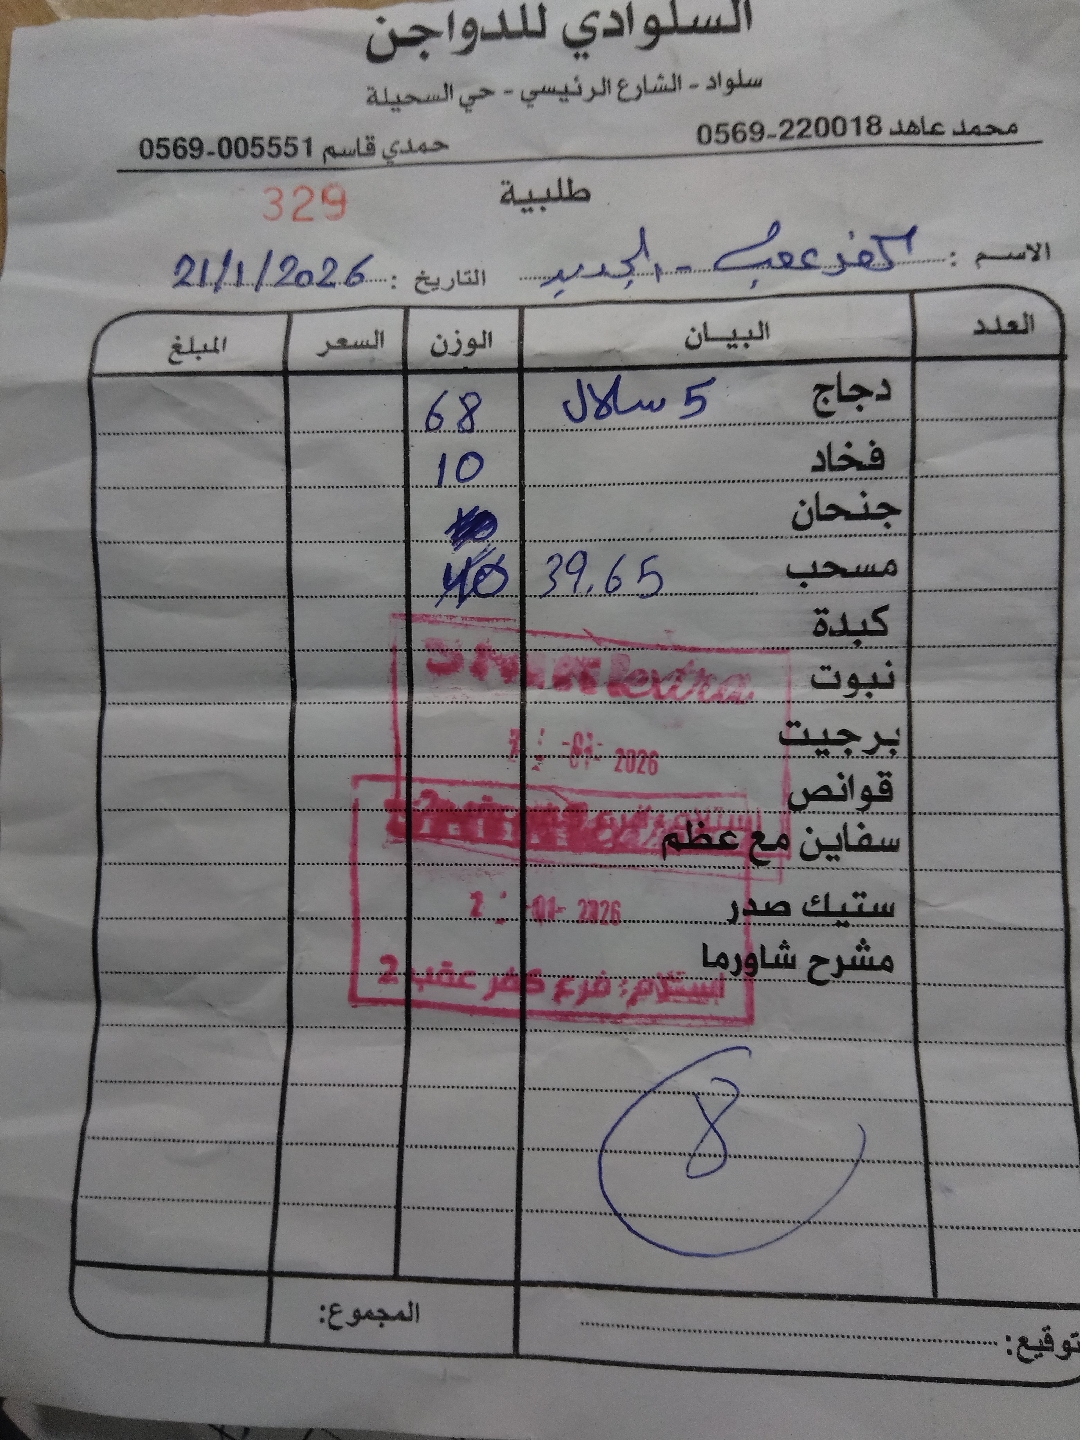 السلوادي للدواجن
سلواد - الشارع الرئيسي - حي السحيلة
محمد عاهد 0569-220018 حمدي قاسم 0569-005551
طلبية 329
الاسم : كفر عقب - الجديد التاريخ : 21/1/2026
العدد البيان الوزن السعر المبلغ
دجاج 5 سلال 68
فخاد 10
جنحان
مسحب 39.65 40
كبدة
نبوت
extra
برجيت
01- 2026
قوانص
سفاين مع عظم
ستيك صدر
-01- 2026
مشرح شاورما
استلام: فرع كفر عقب 2
8
المجموع:
توقيع: